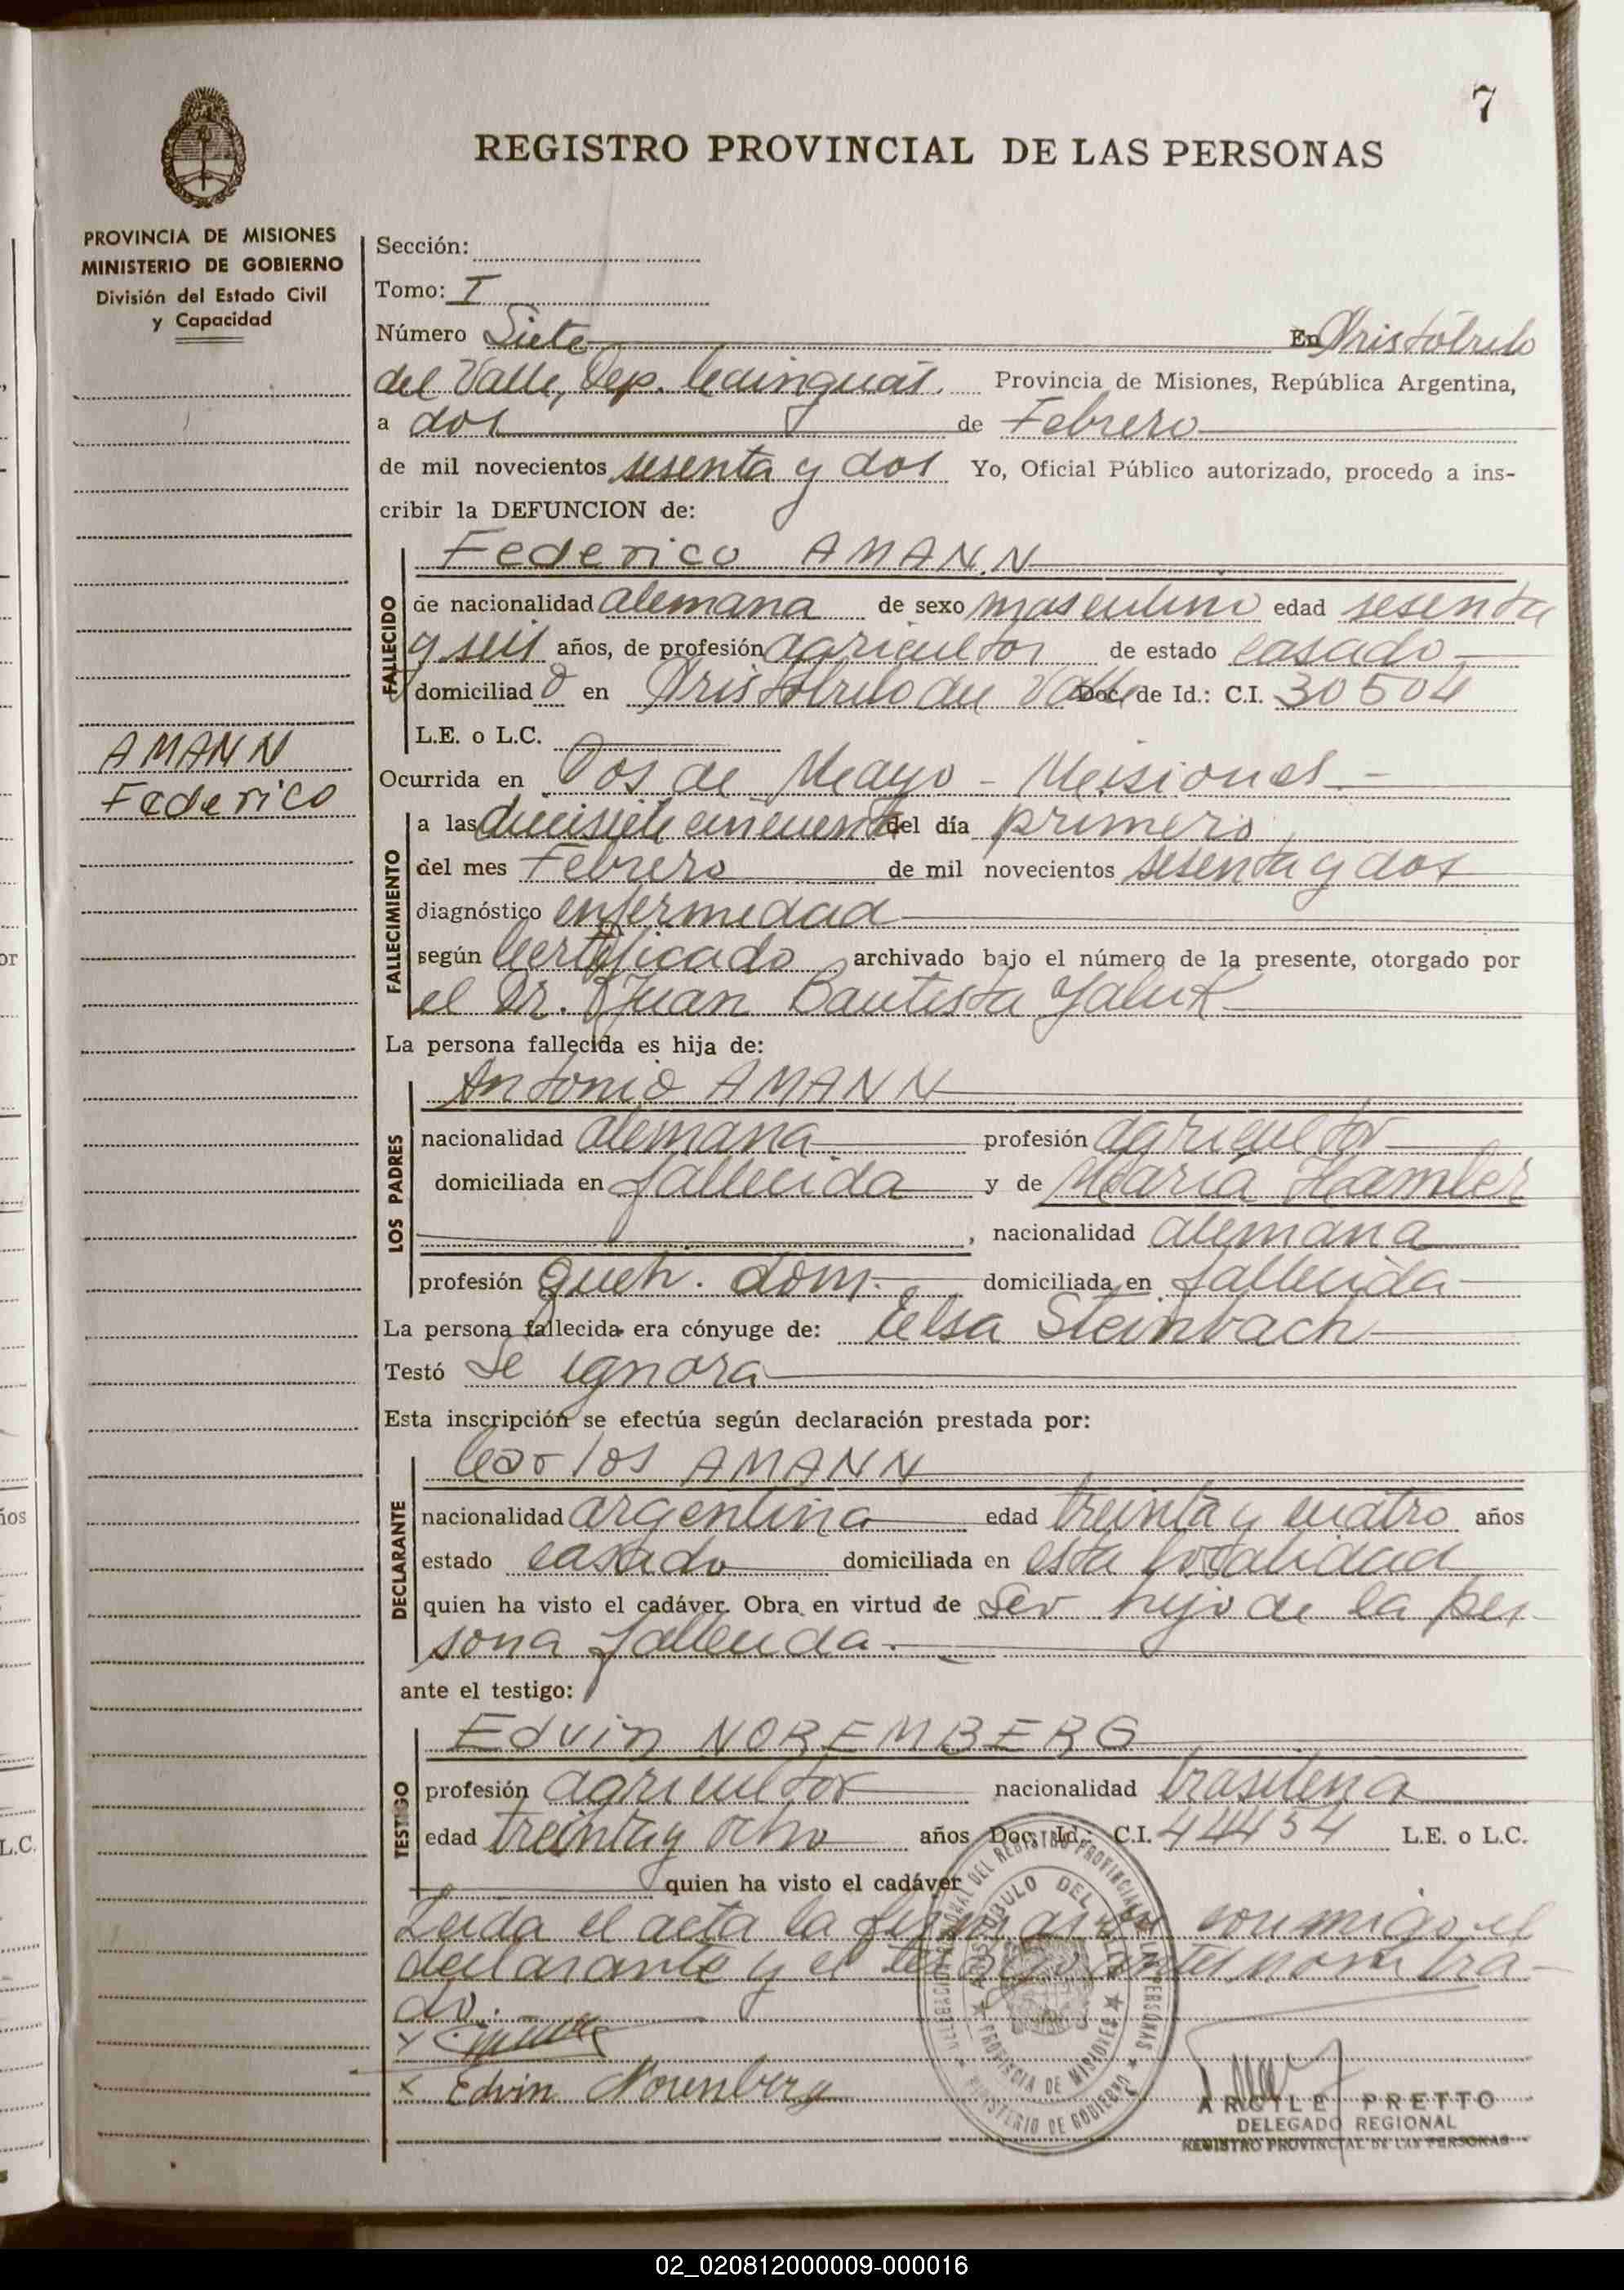 7
REGISTRO PROVINCIAL DE LAS PERSONAS
PROVINCIA DE MISIONES
MINISTERIO DE GOBIERNO
División del Estado Civil
y Capacidad
AMANN
Federico
Sección:
Tomo: I
Número Siete En Aristóbulo
del Valle, Dep. Cainguás. Provincia de Misiones, República Argentina,
a dos de Febrero
de mil novecientos sesenta y dos Yo, Oficial Público autorizado, procedo a ins-
cribir la DEFUNCION de:
FALLECIDO
Federico AMANN
de nacionalidad alemana de sexo masculino edad sesenta
y seis años, de profesión agricultor de estado casado
domiciliado en Aristóbulo del Valle Doc. de Id.: C.I. 30504
L.E. o L.C.
Ocurrida en Dos de Mayo - Misiones -
FALLECIMIENTO
a las diecisiete cincuenta del día primero
del mes Febrero de mil novecientos sesenta y dos
diagnóstico enfermedad
según Certificado archivado bajo el número de la presente, otorgado por
el Dr. Juan Bautista
La persona fallecida es hija de:
LOS PADRES
Antonio AMANN
nacionalidad alemana profesión agricultor
domiciliada en fallecida y de María Haemler
, nacionalidad alemana
profesión queh. dom. domiciliada en fallecida
La persona fallecida era cónyuge de: Elsa Steinbach
Testó Se ignora
Esta inscripción se efectúa según declaración prestada por:
DECLARANTE
Carlos AMANN
nacionalidad argentina edad treinta y cuatro años
estado casado domiciliada en esta localidad
quien ha visto el cadáver. Obra en virtud de ser hijo de la per-
sona fallecida.
ante el testigo:
TESTIGO
Edvin NOREMBERG
profesión agricultor nacionalidad brasilena
edad treinta y ocho años Doc. Id.: C.I. 44454 L.E. o L.C.
quien ha visto el cadáver
Leida el acta la firmaron conmigo el
declarante y el testigo antes nombra-
do.
x
x Edvin Norenberg
DELEGACION REGIONAL DEL REGISTRO PROVINCIAL DE LAS PERSONAS
MINISTERIO DE GOBIERNO
ARISTOBULO DEL VALLE
PROVINCIA DE MISIONES
ARGILE PRETTO
DELEGADO REGIONAL
REGISTRO PROVINCIAL DE LAS PERSONAS
02_020812000009-000016